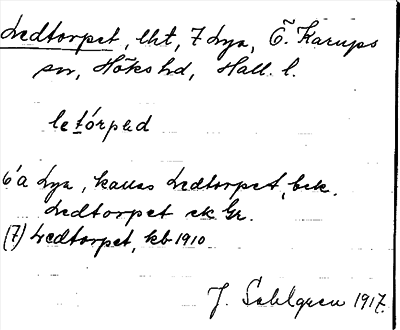 Ledtorpet, lht, 7 Lya, Ö. Karups
sn, Höks hd, Hall. l.
letórped
6 a Lya, kallas Ledtorpet, bek.
Ledtorpet ek Gr.
(7) Ledtorpet, kb 1910
J. Sahlgren 1917.